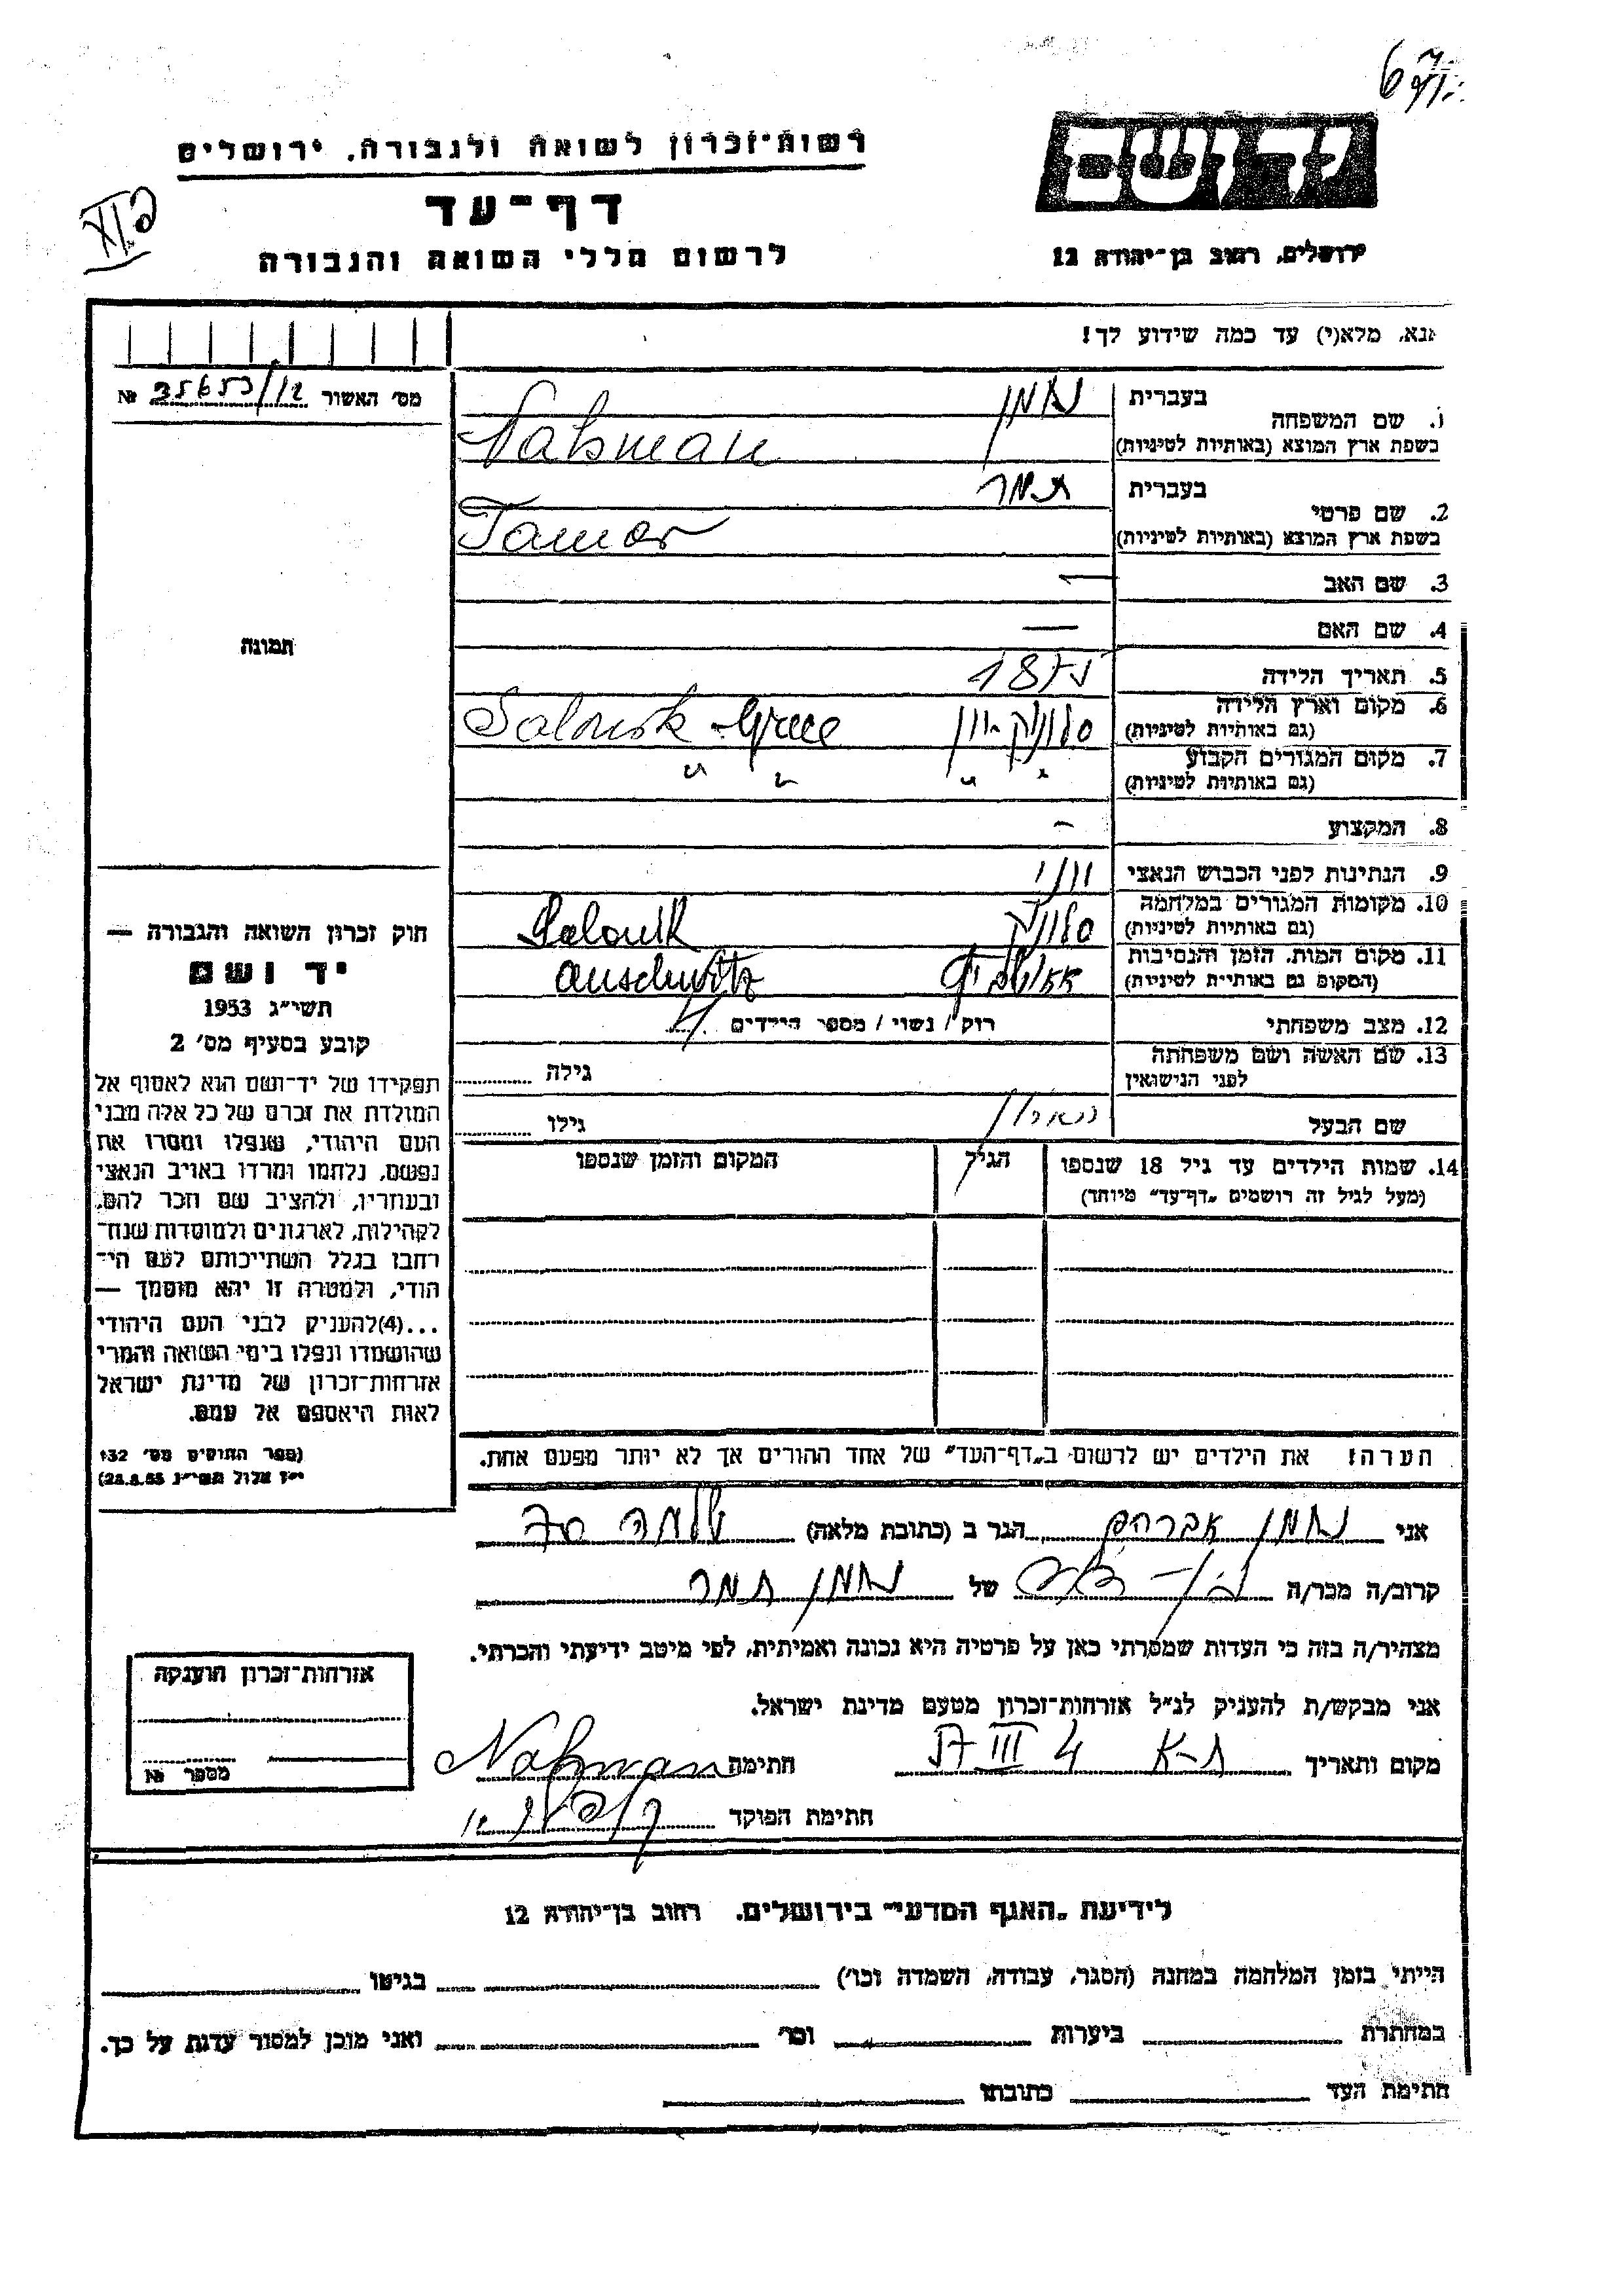 רשות־זכרון לשואה ולגבורה, ירושלים
דף־עד
לרשום חללי השואה והגבורה
יד ושם
ירושלים, רחוב בן־יהודה 12
אנא, מלא(י) עד כמה שידוע לך!
מס׳ האשור 35653/12 №
1. שם המשפחה
בעברית נחמן
בשפת ארץ המוצא (באותיות לטיניות) Nahman
2. שם פרטי
בעברית תמר
בשפת ארץ המוצא (באותיות לטיניות) Tamar
3. שם האב —
4. שם האם —
5. תאריך הלידה 1875
6. מקום וארץ הלידה סלוניק יוון Salonik - Grece
(גם באותיות לטיניות)
7. מקום המגורים הקבוע " " " "
(גם באותיות לטיניות)
8. המקצוע —
9. הנתינות לפני הכבוש הנאצי יווני
10. מקומות המגורים במלחמה סלוניק Salonik
(גם באותיות לטיניות)
11. מקום המות, הזמן והנסיבות אאושוויץ Auschwitz
(המקום גם באותיות לטיניות)
12. מצב משפחתי רוק / נשוי / מספר הילדים 4
13. שם האשה ושם משפחתה
לפני הנישואין גילה
שם הבעל גילו
14. שמות הילדים עד גיל 18 שנספו הגיל המקום והזמן שנספו
(מעל לגיל זה רושמים „דף־עד״ מיוחד)
הערה! את הילדים יש לרשום ב„דף־העד״ של אחד ההורים אך לא יותר מפעם אחת.
תמונה
חוק זכרון השואה והגבורה —
יד ושם
תשי״ג 1953
קובע בסעיף מס׳ 2
תפקידו של יד־ושם הוא לאסוף אל
המולדת את זכרם של כל אלה מבני
העם היהודי, שנפלו ומסרו את
נפשם, נלחמו ומרדו באויב הנאצי
ובעוזריו, ולהציב שם וזכר להם,
לקהילות, לארגונים ולמוסדות שנח־
רחבו בגלל השתייכותם לעם הי־
הודי, ולמטרה זו יהא מוסמך —
...(4)להעניק לבני העם היהודי
שהושמדו ונפלו בימי השואה והמרי
אזרחות־זכרון של מדינת ישראל
לאות היאספם אל עמם.
(ספר החוקים מס׳ 132
י״ז אלול תשי״ג 28.8.53)
אני נחמן אברהם הגר ב (כתובת מלאה) שלמה 70
קרוב/ה מכר/ה של נחמן תמר
מצהיר/ה בזה כי העדות שמסרתי כאן על פרטיה היא נכונה ואמיתית, לפי מיטב ידיעתי והכרתי.
אני מבקש/ת להעניק לנ״ל אזרחות־זכרון מטעם מדינת ישראל.
מקום ותאריך ת-א 4 III 57 חתימה Nahman
חתימת הפוקד
אזרחות־זכרון הוענקה
מספר №
לידיעת „האגף המדעי״ בירושלים, רחוב בן־יהודה 12
הייתי בזמן המלחמה במחנה (הסגר, עבודה, השמדה וכו׳) בגיטו
במחתרת ביערות וכו׳ ואני מוכן למסור עדות על כך.
חתימת העד כתובתו